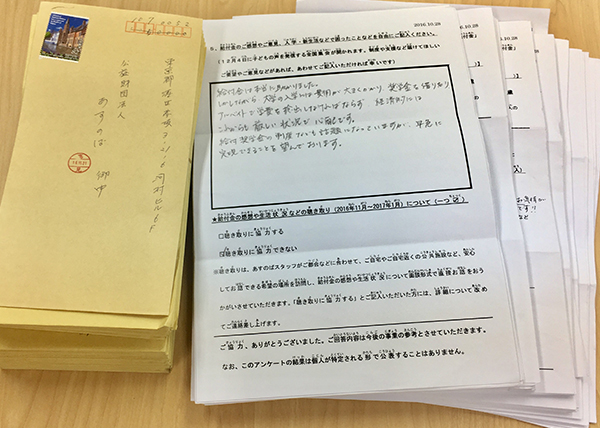 東京都港区赤坂
河村ビル6F
公益財団法人
あすのば 御中
2016.10.28
6. 給付金の感想やご意見、入学・新生活などで困ったことなどを自由にご記入ください。
(12月4日に子どもの声を発信する全国集会が開かれます。制度や支援など届けてほしい
ご要望やご意見などがあれば、あわせてご記入いただければ幸いです)
給付金は本当に助かりました。
しかしながら、大学の入学は費用が大きくかかり 奨学金を借りたり
アルバイトで学費を捻出しなければならず 経済的には
これからも厳しい状況で心配です。
給付奨学金の制度なども話題になっていますが、早急に
実現できることを望んでおります。
★給付金の感想や生活状況などの聴き取り(2016年11月~2017年1月)について(一つ☑)
□聴き取りに協力する
聴き取りに協力できない
※聴き取りは、あすのばスタッフがご都合などに合わせて、ご自宅やご自宅近くの公共施設など、安心
してお話できる希望の場所を訪問し、給付金の感想や生活状況について面談形式で直接お話をおう
かがいさせていただきます。「聴き取りに協力する」とご記入いただいた方には、詳細について改め
てご連絡差し上げます。
ご協力、ありがとうございました。ご回答内容は今後の事業の参考とさせていただきます。
なお、このアンケートの結果は個人が特定される形で公表することはありません。
2016.10.28
2016.10.28